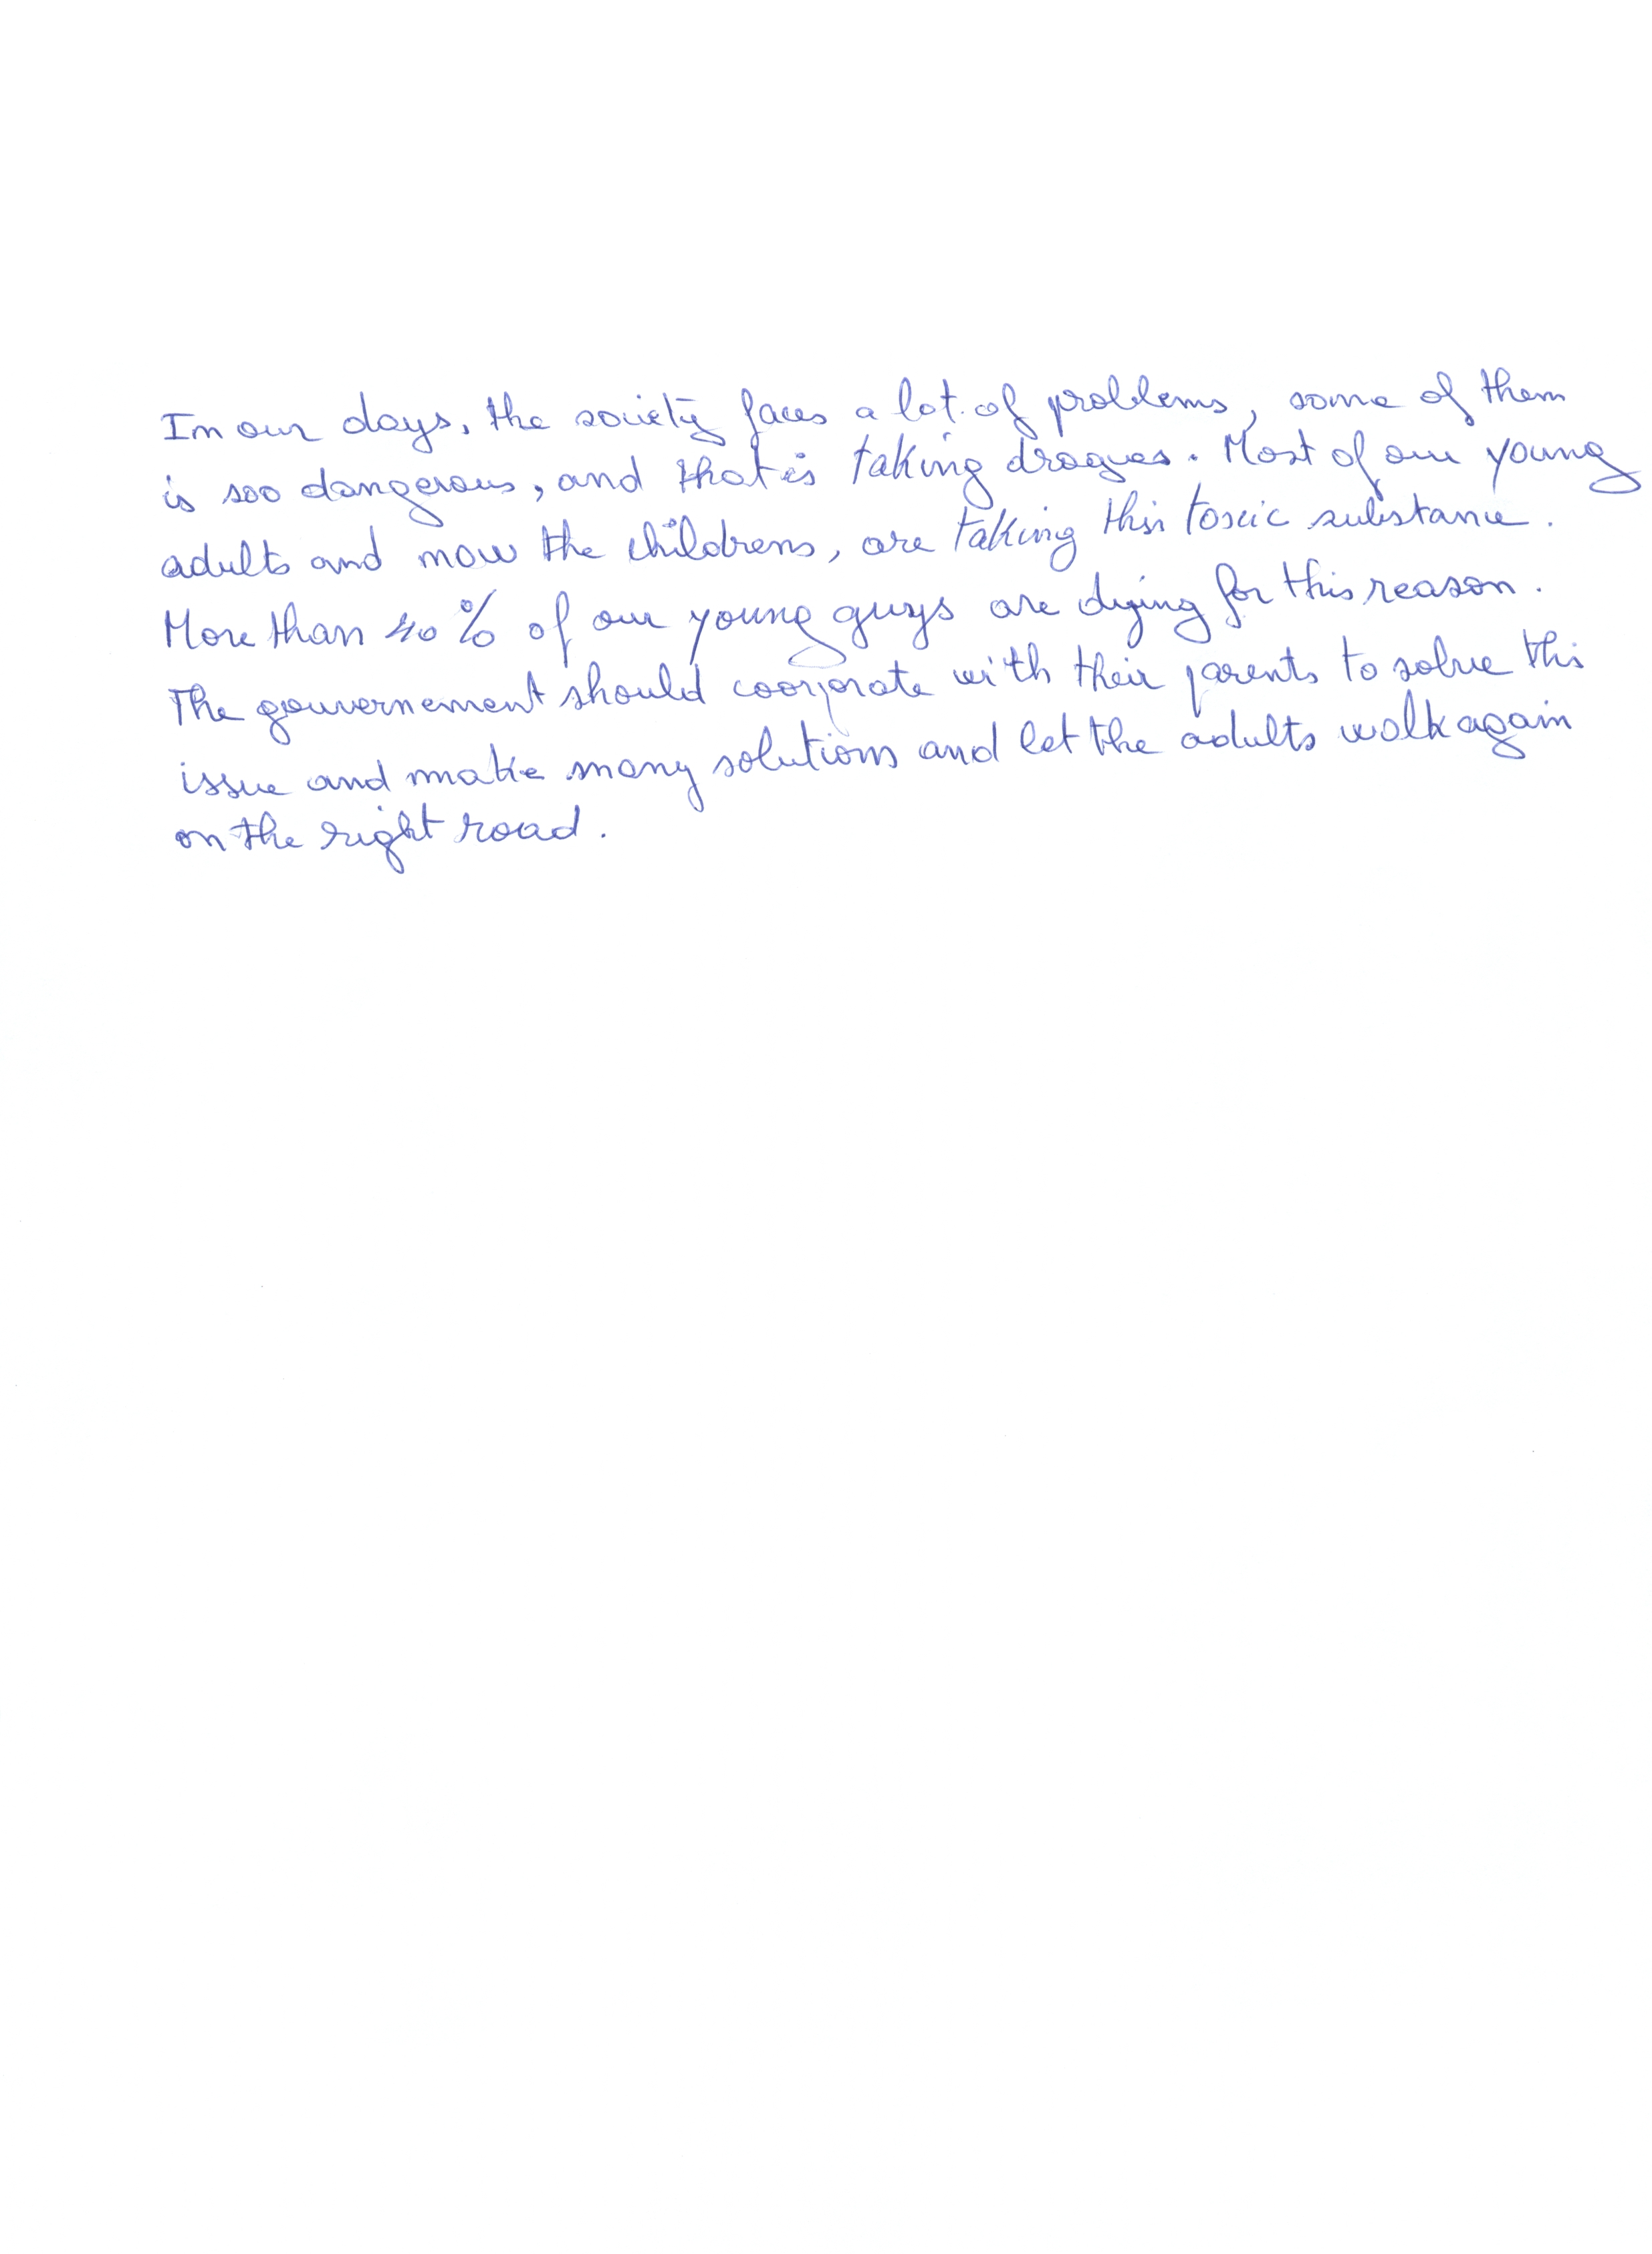 In our days, the society faces a lot of problems, some of them
is soo dangerous, and that is taking drogues. Most of our young
adults and now the childrens, are taking this toxic substance.
More than 40 % of our young guys are dying for this reason.
The gouvernement should coorporate with their parents to solve this
issue and make many solutions and let the adults walk again
on the right road.